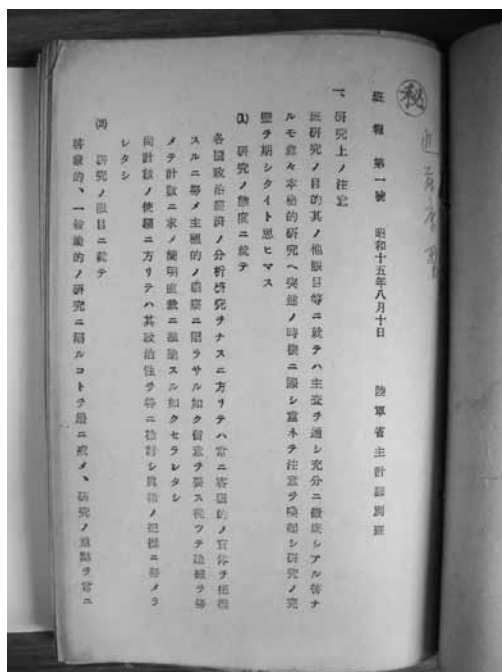 秘
班報 第一號 昭和十五年八月十日 陸軍省主計課別班
一、研究上ノ注意
班研究ノ目的其ノ他眼目等ニ就テハ主査ヲ通シ充分ニ徹底シアル筈ナ
ルモ愈々本格的研究ヘ突進ノ時機ニ際シ重ネテ注意ヲ喚起シ研究ノ完
璧ヲ期シタイト思ヒマス
(1) 研究ノ態度ニ就テ
各國政治經濟ノ分析研究ヲナスニ方リテハ常ニ客觀的ノ實体ヲ把握
スルニ努メ主觀的ノ觀察ニ陷ラサル如ク留意ヲ要ス從ツテ論據ヲ努
メテ計數ニ求メ簡明直截ニ論斷スル如クセラレタシ
尚計數ノ使額ニ方リテハ其政治性ヲ特ニ檢討シ眞相ノ把握ニ努メラ
レタシ
(2) 研究ノ眼目ニ就テ
啓蒙的、一般論的ノ研究ニ陷ルコトヲ嚴ニ戒メ、研究ノ重點ヲ常ニ